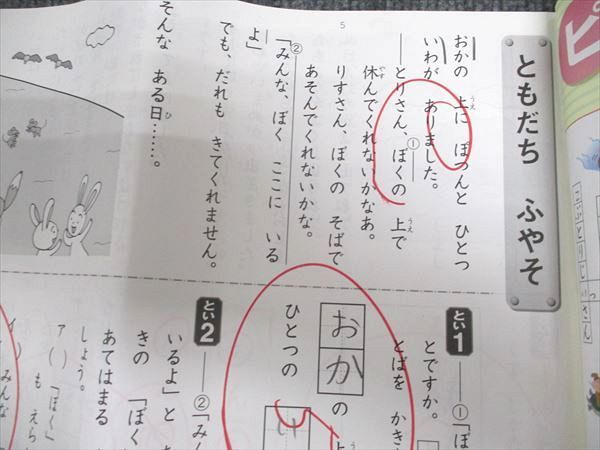 ともだち ふやそ
おかの 上に ぽつんと ひとつ
うえ
いわが ありました。
――とりさん、ぼくの 上で
①
うえ
休んでくれないかなあ。
やす
りすさん、ぼくの そばで
あそんでくれないかな。
②
「みんな、ぼく ここに いる
よ」
でも、だれも きてくれません。
そんな ある日……。
ひ
5
とい1
――①「ぼ
とですか。
とばを かき
おか の 上
ひとつの い
とい2
――②「み
いるよ」と
きの 「ぼく
あてはまる
しょう。
ア（ ）「ぼく」
も えら
イ（ ）
みんな
ピ